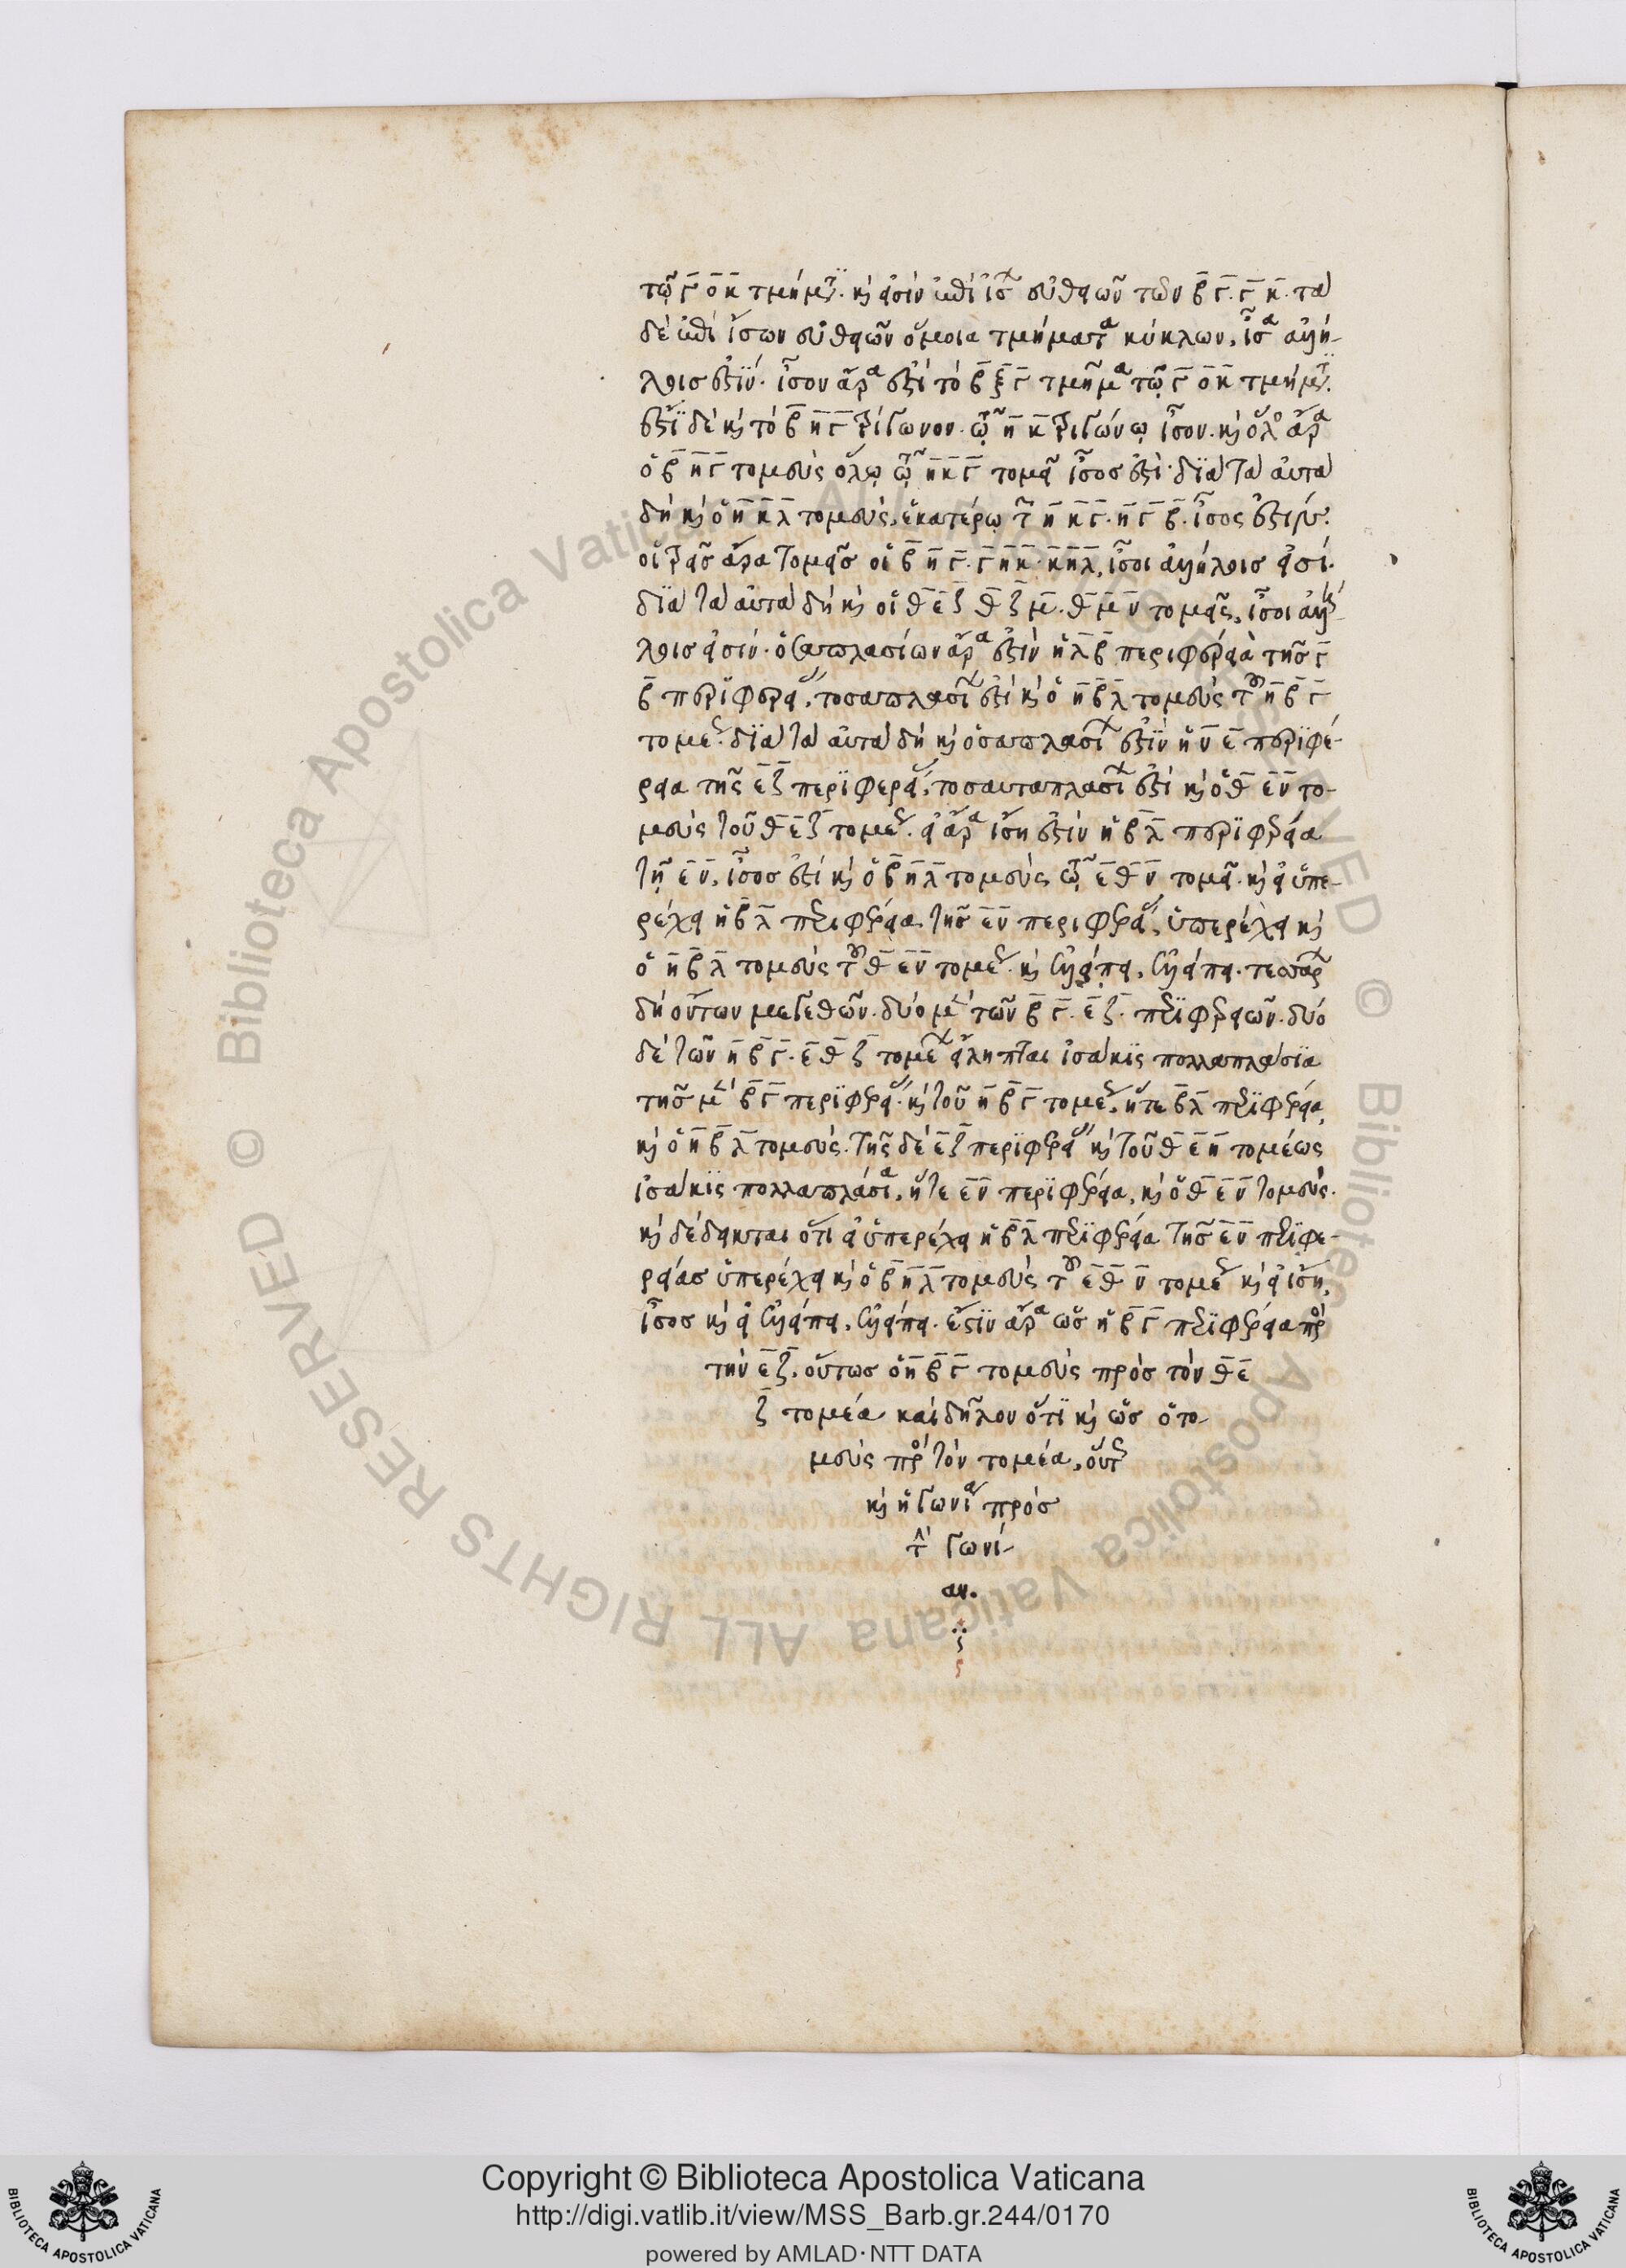 τῷ γ̅ ο̅κ̅ τμήματι. καὶ εἰσὶν ἐπὶ ἴσων εὐθειῶν τῶν β̅γ̅. γ̅κ̅. τὰ
δὲ ἐπὶ ἴσων εὐθειῶν ὅμοια τμήματα κύκλων, ἴσα ἀλλή-
λοις ἐστίν. ἴσον ἄρα ἐστὶ τὸ β̅ξ̅γ̅ τμῆμα τῷ γ̅ο̅κ̅ τμήματι.
ἐστὶ δὲ καὶ τὸ β̅η̅γ̅ τρίγωνον. τῷ η̅κ̅ τριγώνῳ ἴσον. καὶ ὅλος ἄρα
ὁ β̅η̅γ̅ τομεὺς ὅλῳ τῷ η̅κ̅γ̅ τομεῖ ἴσος ἐστί. διὰ τὰ αὐτὰ
δὴ καὶ ὁ η̅κ̅λ̅ τομεὺς, ἑκατέρῳ τῶν η̅κ̅γ̅. η̅γ̅β̅. ἴσος ἐστίν.
οἱ τρεῖς ἄρα τομεῖς οἱ β̅η̅γ̅. γ̅η̅κ̅. κ̅η̅λ̅, ἴσοι ἀλλήλοις εἰσί.
διὰ τὰ αὐτὰ δὴ καὶ οἱ θ̅ε̅ζ̅ θ̅ζ̅μ̅. θ̅μ̅ν̅ τομεῖς, ἴσοι ἀλλή-
λοις εἰσίν. ὁσαπλασίων ἄρα ἐστὶν ἡ λ̅β̅ περιφέρεια τῆς γ̅
β̅ περιφερείας, τοσαπλασίων ἐστὶ καὶ ὁ η̅β̅λ̅ τομεὺς τοῦ η̅β̅γ̅
τομέως. διὰ τὰ αὐτὰ δὴ καὶ ὁσαπλασίων ἐστὶν ἡ ν̅ε̅ περιφέ-
ρεια τῆς ε̅ζ̅ περιφερείας, τοσαυταπλασίων ἐστὶ καὶ ὁ θ̅ε̅ν̅ το-
μεὺς τοῦ θ̅ε̅ζ̅ τομέως. εἰ ἄρα ἴση ἐστὶν ἡ β̅λ̅ περιφέρεια
τῇ ε̅ν̅, ἴσος ἐστὶ καὶ ὁ β̅η̅λ̅ τομεὺς τῷ ε̅θ̅ν̅ τομεῖ. καὶ εἰ ὑπε-
ρέχει ἡ β̅λ̅ περιφέρεια τῆς ε̅ν̅ περιφερείας, ὑπερέχει καὶ
ὁ η̅β̅λ̅ τομεὺς τοῦ θ̅ε̅ν̅ τομέως. καὶ ἐλλείπει, ἐλλείπει. τεσσάρων
δὴ ὄντων μεγεθῶν. δύο μὲν τῶν β̅γ̅. ε̅ζ̅. περιφερειῶν. δύο
δὲ τῶν η̅β̅γ̅. ε̅θ̅ζ̅ τομέων εἴληπται ἰσάκις πολλαπλάσια
τῆς μὲν β̅γ̅ περιφερείας. καὶ τοῦ η̅β̅γ̅ τομέως, ἥτε β̅λ̅ περιφέρεια,
καὶ ὁ η̅β̅λ̅ τομεύς. τῆς δὲ ε̅ζ̅ περιφερείας καὶ τοῦ θ̅ε̅η̅ τομέως
ἰσάκις πολλαπλάσια, ἥτε ε̅ν̅ περιφέρεια, καὶ ὁ θ̅ε̅ν̅ τομεύς.
καὶ δέδεικται ὅτι εἰ ὑπερέχει ἡ β̅λ̅ περιφέρεια τῆς ε̅ν̅ περιφε-
ρείας ὑπερέχει καὶ ὁ β̅η̅λ̅ τομεὺς τοῦ ε̅θ̅ν̅ τομέως καὶ εἰ ἴση,
ἴσος καὶ εἰ ἐλλείπει, ἐλλείπει. ἐστὶν ἄρα ὡς ἡ β̅γ̅ περιφέρεια πρὸς
τὴν ε̅ζ̅, οὕτως ὁ η̅β̅γ̅ τομεὺς πρὸς τὸν θ̅ε̅
ζ̅ τομέα καὶ δῆλον ὅτι καὶ ὡς ὁ το-
μεὺς πρὸς τὸν τομέα, οὕτως
καὶ ἡ γωνία πρὸς
τὴν γωνί-
αν.
Copyright © Biblioteca Apostolica Vaticana
http://digi.vatlib.it/view/MSS_Barb.gr.244/0170
powered by AMLAD·NTT DATA
BIBLIOTECA APOSTOLICA VATICANA
BIBLIOTECA APOSTOLICA VATICANA
© Biblioteca Apostolica Vaticana ALL RIGHTS RESERVED © Biblioteca Apostolica Vaticana ALL RIGHTS RESERVED